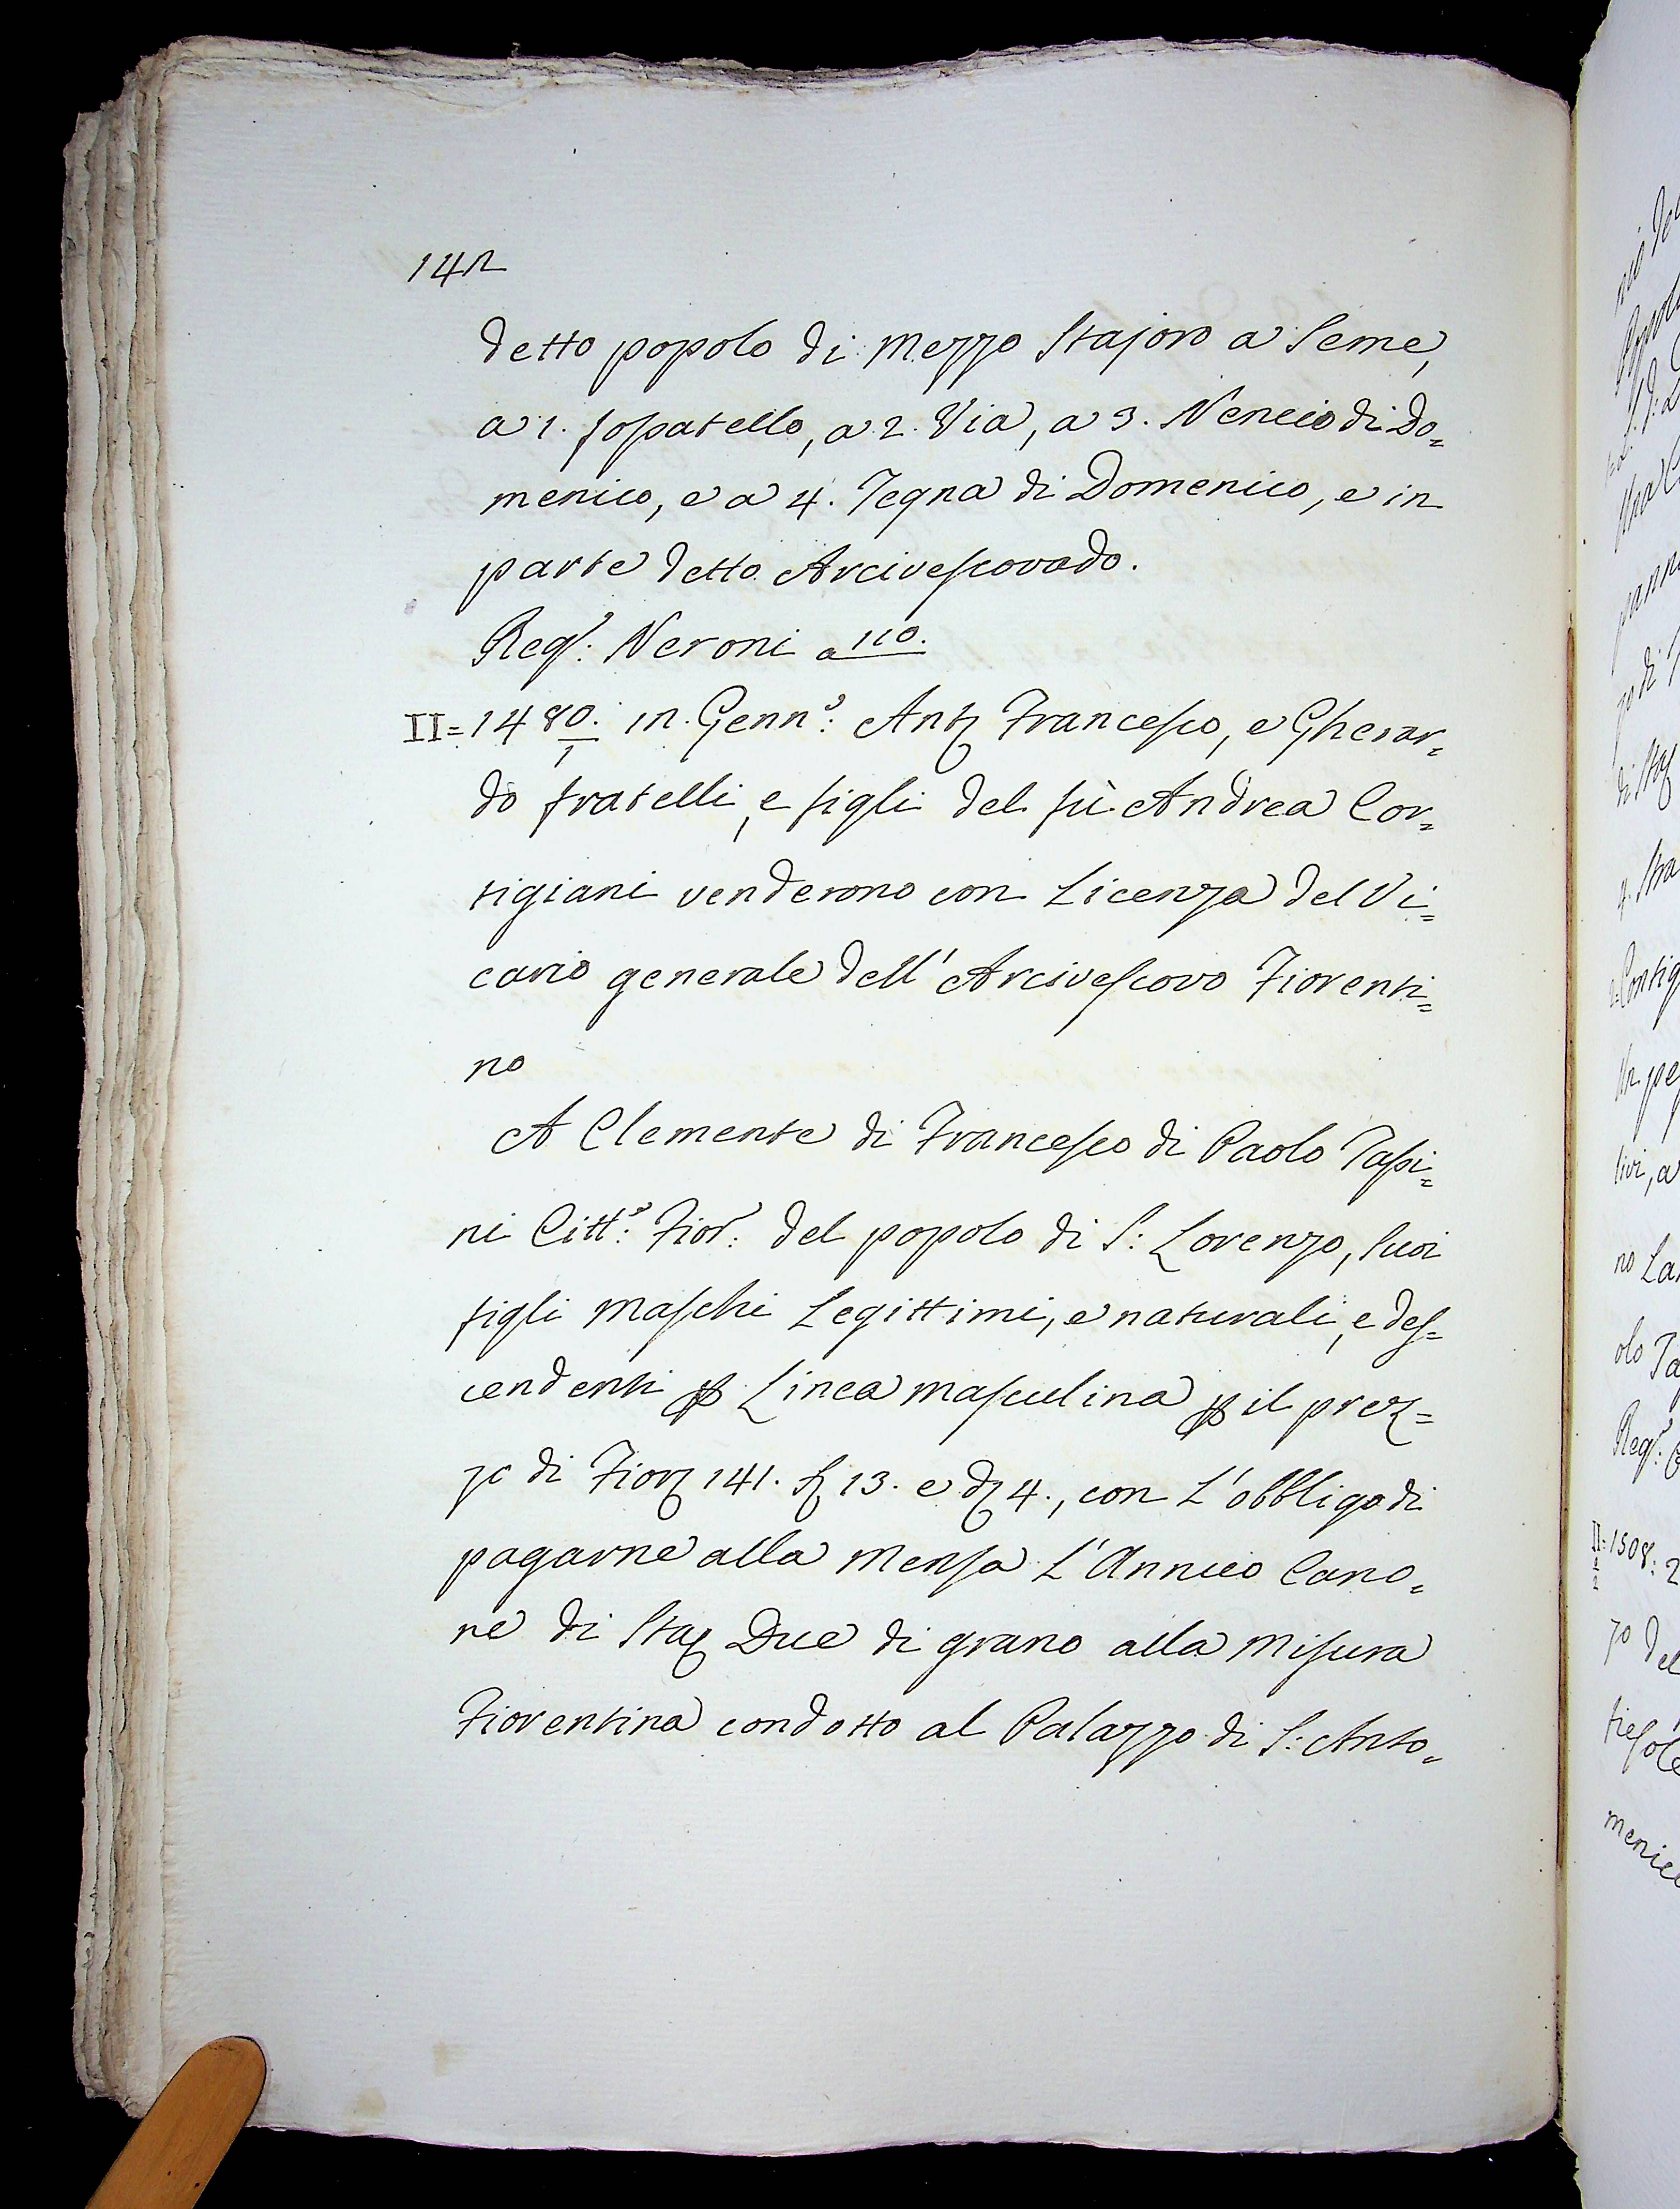 142
detto popolo di mezzo Stajoro a Seme,
a 1. fossatello, a 2. Via, a 3. Nencio di Do=
menico, e a 4. Tegna di Domenico, e in
parte detto Arcivescovado.
Reg.: Neroni a 110.
II = 1480. in Genn.o: Ant. Francesco, e Gherar=
1
do fratelli, e figli del fù Andrea Cor=
tigiani venderono con Licenza del Vi=
cario generale dell' Arcivescovo Fiorenti=
no
A Clemente di Francesco di Paolo Tassi=
ni Citt.o: Fior.: del popolo di S: Lorenzo, Suoi
figli maschi Legittimi, e naturali, e des=
cendenti p Linea masculina p il prez=
zo di Fior. 141. S. 13. e d. 4., con L' obbligo di
pagarne alla Mensa L' Annuo Cano=
ne di Sta. Due di grano alla Misura
Fiorentina condotto al Palazzo di S: Anto=
menico